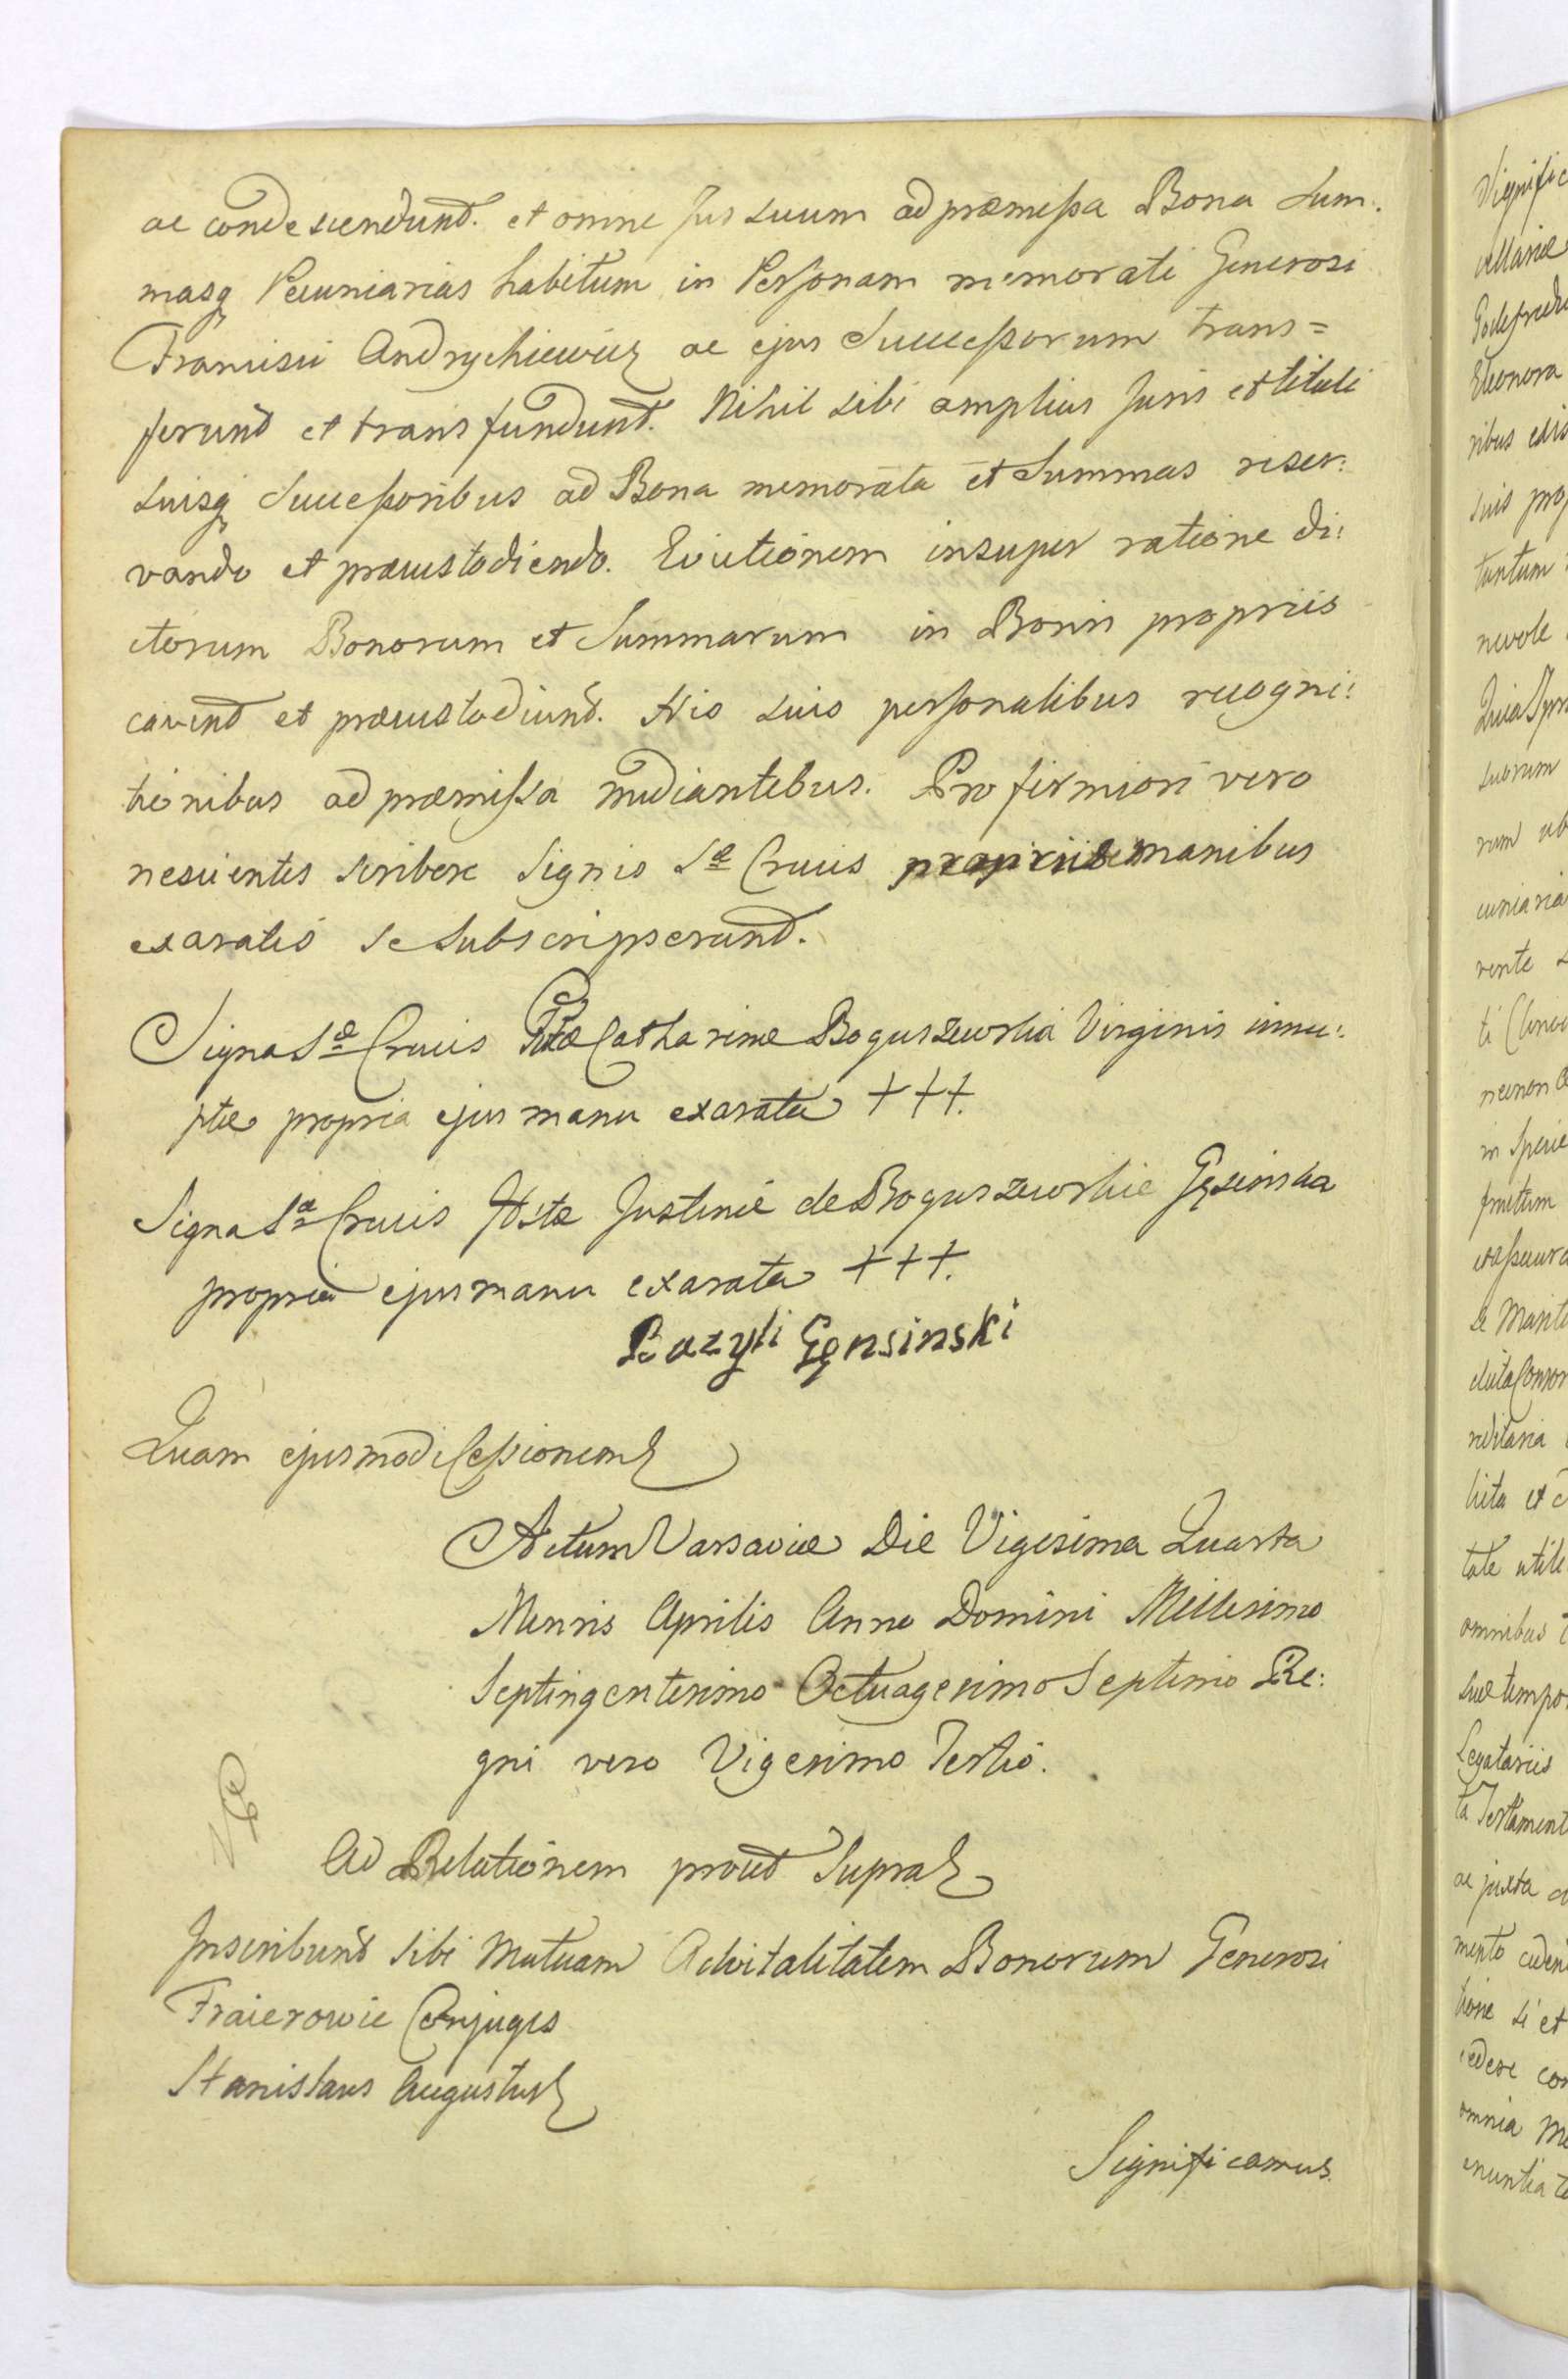 ac condescendunt. et omne Jus suum ad præmissa Bona Sum:
masq Pecuniarias habitum in Personam memorati Generosi
Francisci Andrychiewicz ac ejus Successorum trans=
ferunt et transfundunt. Nihil sibi amplius Juris et tituli
suisq Successoribus ad Bona memorata et Summas reser:
vando et præcustodiendo. Evictionem insuper ratione di:
ctorum Bonorum et Summarum in Bonis propriis
cavent et præcustodiunt. His suis personalibus recogni:
tionibus ad præmissa mediantibus. Pro firmiori vero
nescientes scribere Signis Sæ Crucis propriis manibus
exaratis se subscripserunt.
Signa Sæ Crucis Catharinæ Boguszewska Virginis innu:
ptæ propria ejus manu exarata +++.
Signa Sæ Crucis Justinæ de Boguszewskie Gęsinska
propria ejus manu exarata +++.
Bazyli Gęnsinski
Quam ejusmodi Cessionem
Actum Varsaviæ Die Vigesima Quarta
Mensis Aprilis Anno Domini Millesimo
Septingentesimo Octuagesimo Septimo Re:
gni vero Vigesimo Tertio.
Ad Relationem prout Supra
Inscribunt sibi Mutuam Advitalitatem Bonorum Generosi
Fraierowie Conjuges
Stanislaus Augustus
Significamus
Signific
Mariæ
Eleonora
ribus
suis
tantum
suorum
rum
cuniaria
ti
in Specie
fructum
de
reditaria
tate
omnibus
suæ tempo
Legatariis
ta Testament
ac juxta
mento
omnia